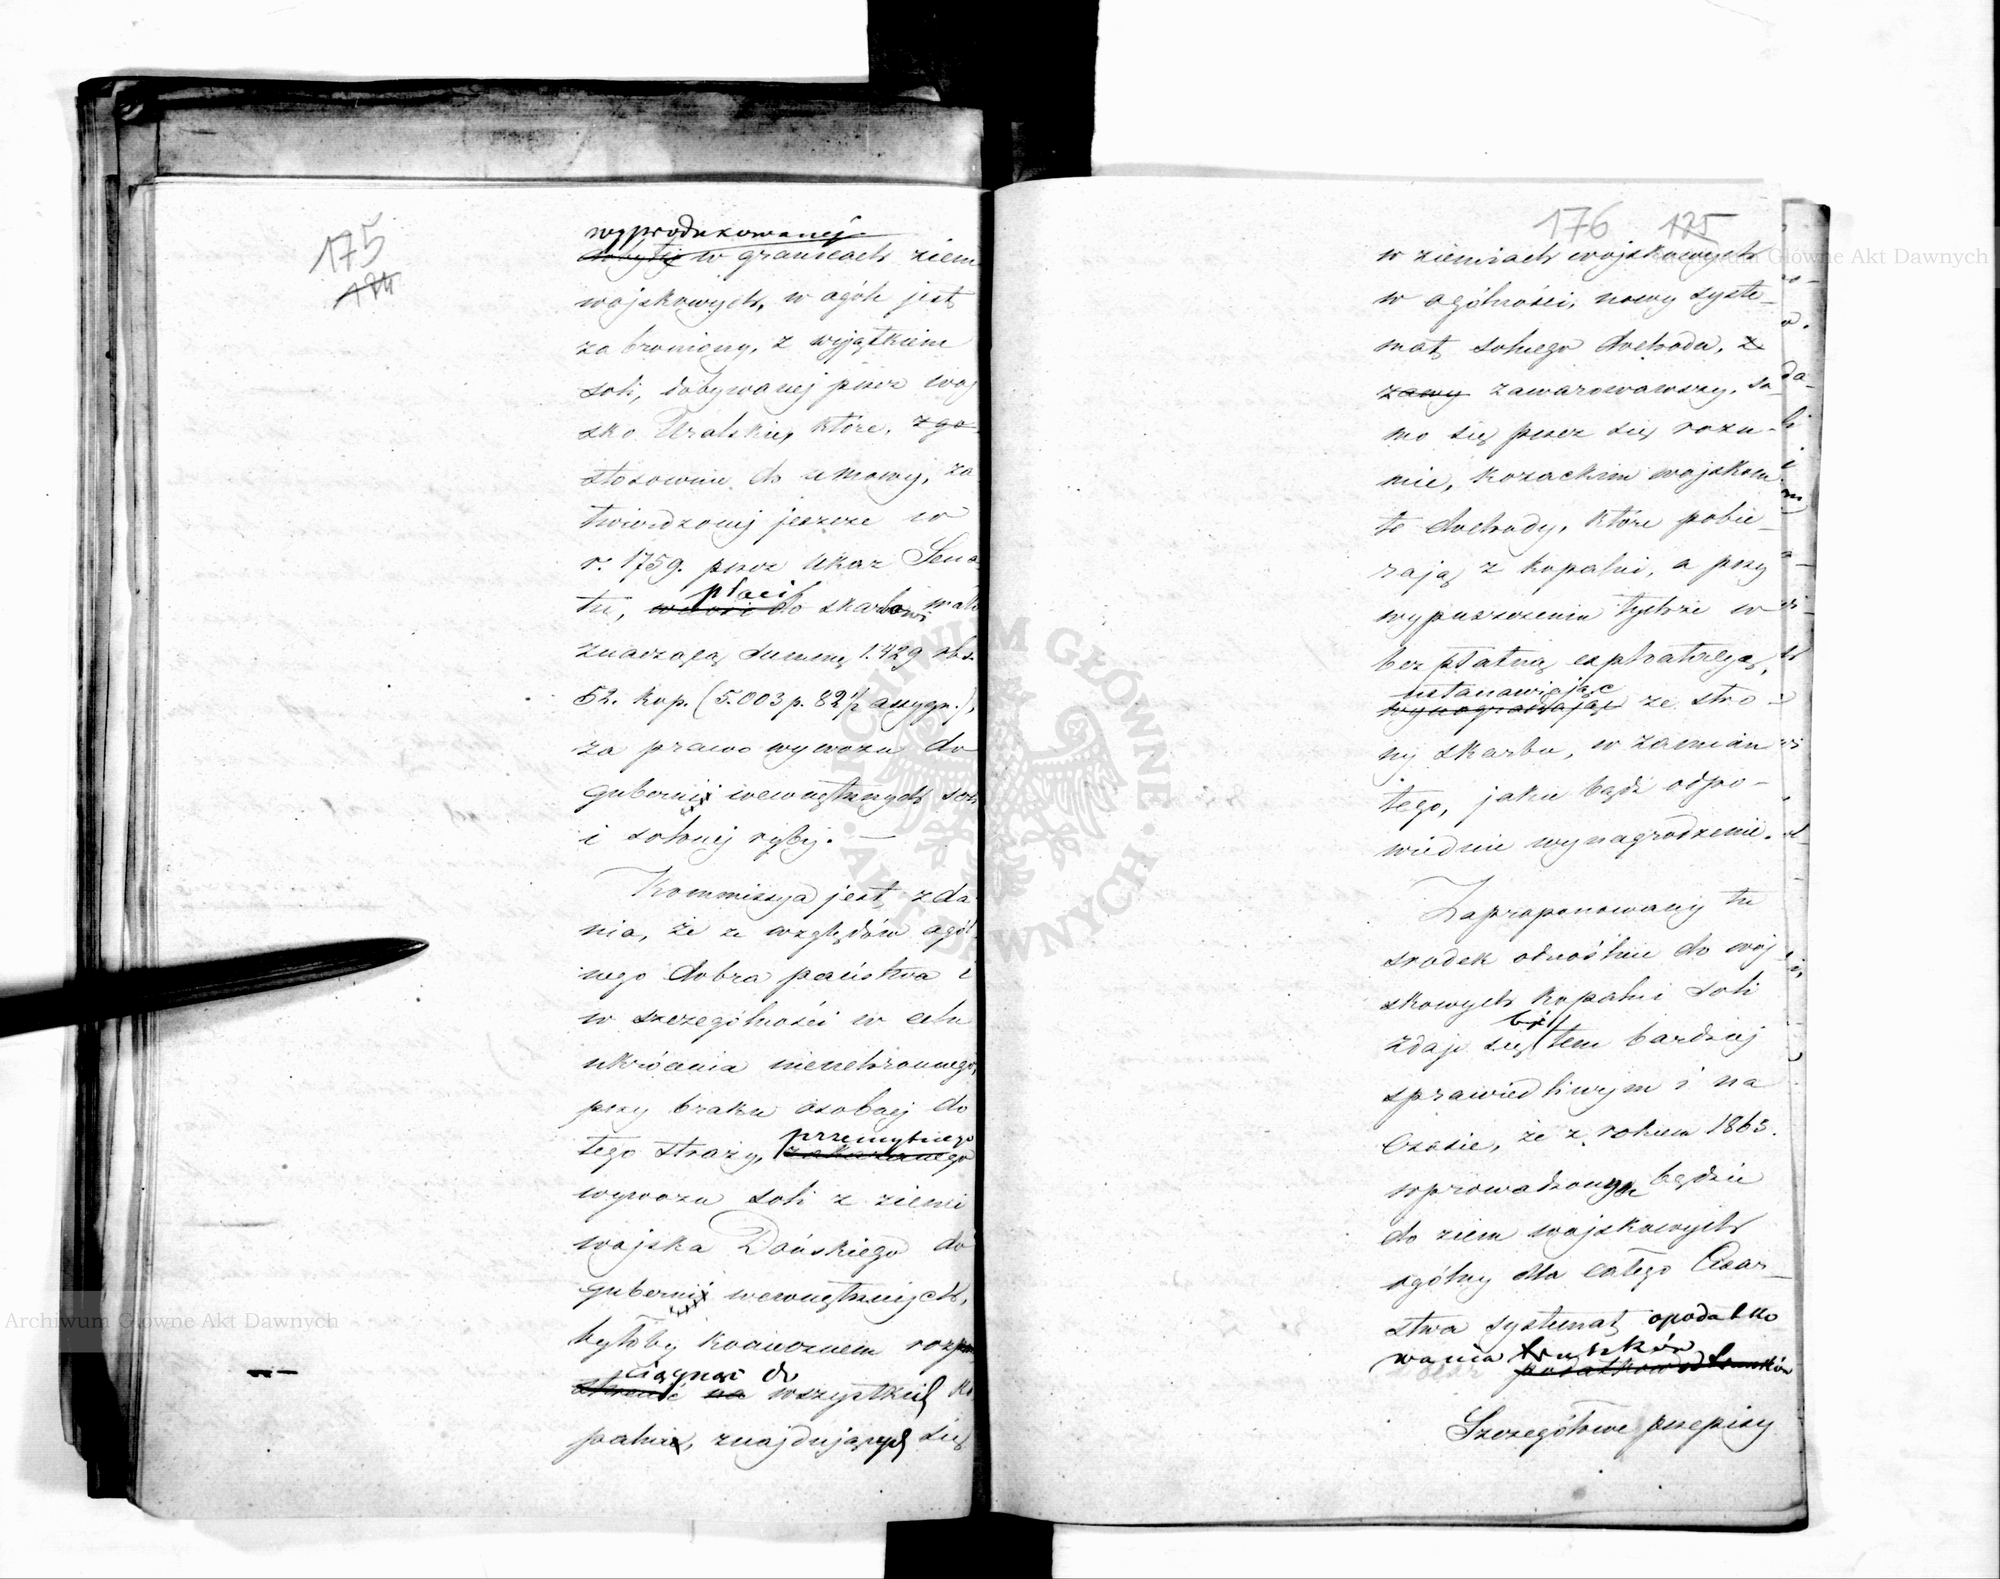 175
174
wyprodukowanej
dobytej w granicach ziem
wojskowych, w ogóle jest
zabroniony, z wyjątkiem
soli, dobywanej przez woj
sko Uralskie, które, zgo
stosownie do umowy, za
twierdzonej jeszcze w
r. 1759. przez ukaz Sena-
tu, płaci
wnosi do skarbowi mało
znaczącą summę 1.429 rbs.
52. kop. (5.003 p. 82 1/2 assygn.),
za prawo wywozu do
gubernij wewnętrznych soli
i solonej ryby. —
Kommissya jest zda
nia, że ze względów ogól
nego dobra państwa i
w szczególności w celu
ukrócenia nieuchronnego,
przy braku osobnej do
tego straży, przemytnego
zakazanego
wywozu soli z ziemi
wojska Dońskiego do
gubernij wewnętrznych,
byłoby koniecznem rozpo
ciągnąć do
wszystkich ko
palni, znajdujących się
176 175
w ziemiach wojskowych
w ogólności, nowy syste-
mat solnego dochodu, z
zawy zawarowawszy, sa-
mo się przez się rozu-
mie, kozackim wojskom
te dochody, które pobie-
rają z kopalni, a przy
wypuszczeniu tychże w
bezpłatną exploatacyę,
ustanawiając
wynagradzając ze stro-
ny skarbu, w zamian
tego, jakie bądź odpo-
wiednie wynagrodzenie.
Zaproponowany tu
srodek odnośnie do woj
skowych kopalni soli
być
zdaje się tem bardziej
sprawiedliwym i na
czasie, że z rokiem 1863.
wprowadzonym będzie
do ziem wojskowych
ogólny dla całego Cesar-
stwa systemat opodatko
wania trunków
podatków od trunków
Szczegółowe przepisy
Archiwum Główne Akt Dawnych
Archiwum Główne Akt Dawnych
ARCHIWUM GŁÓWNE
AKT DAWNYCH